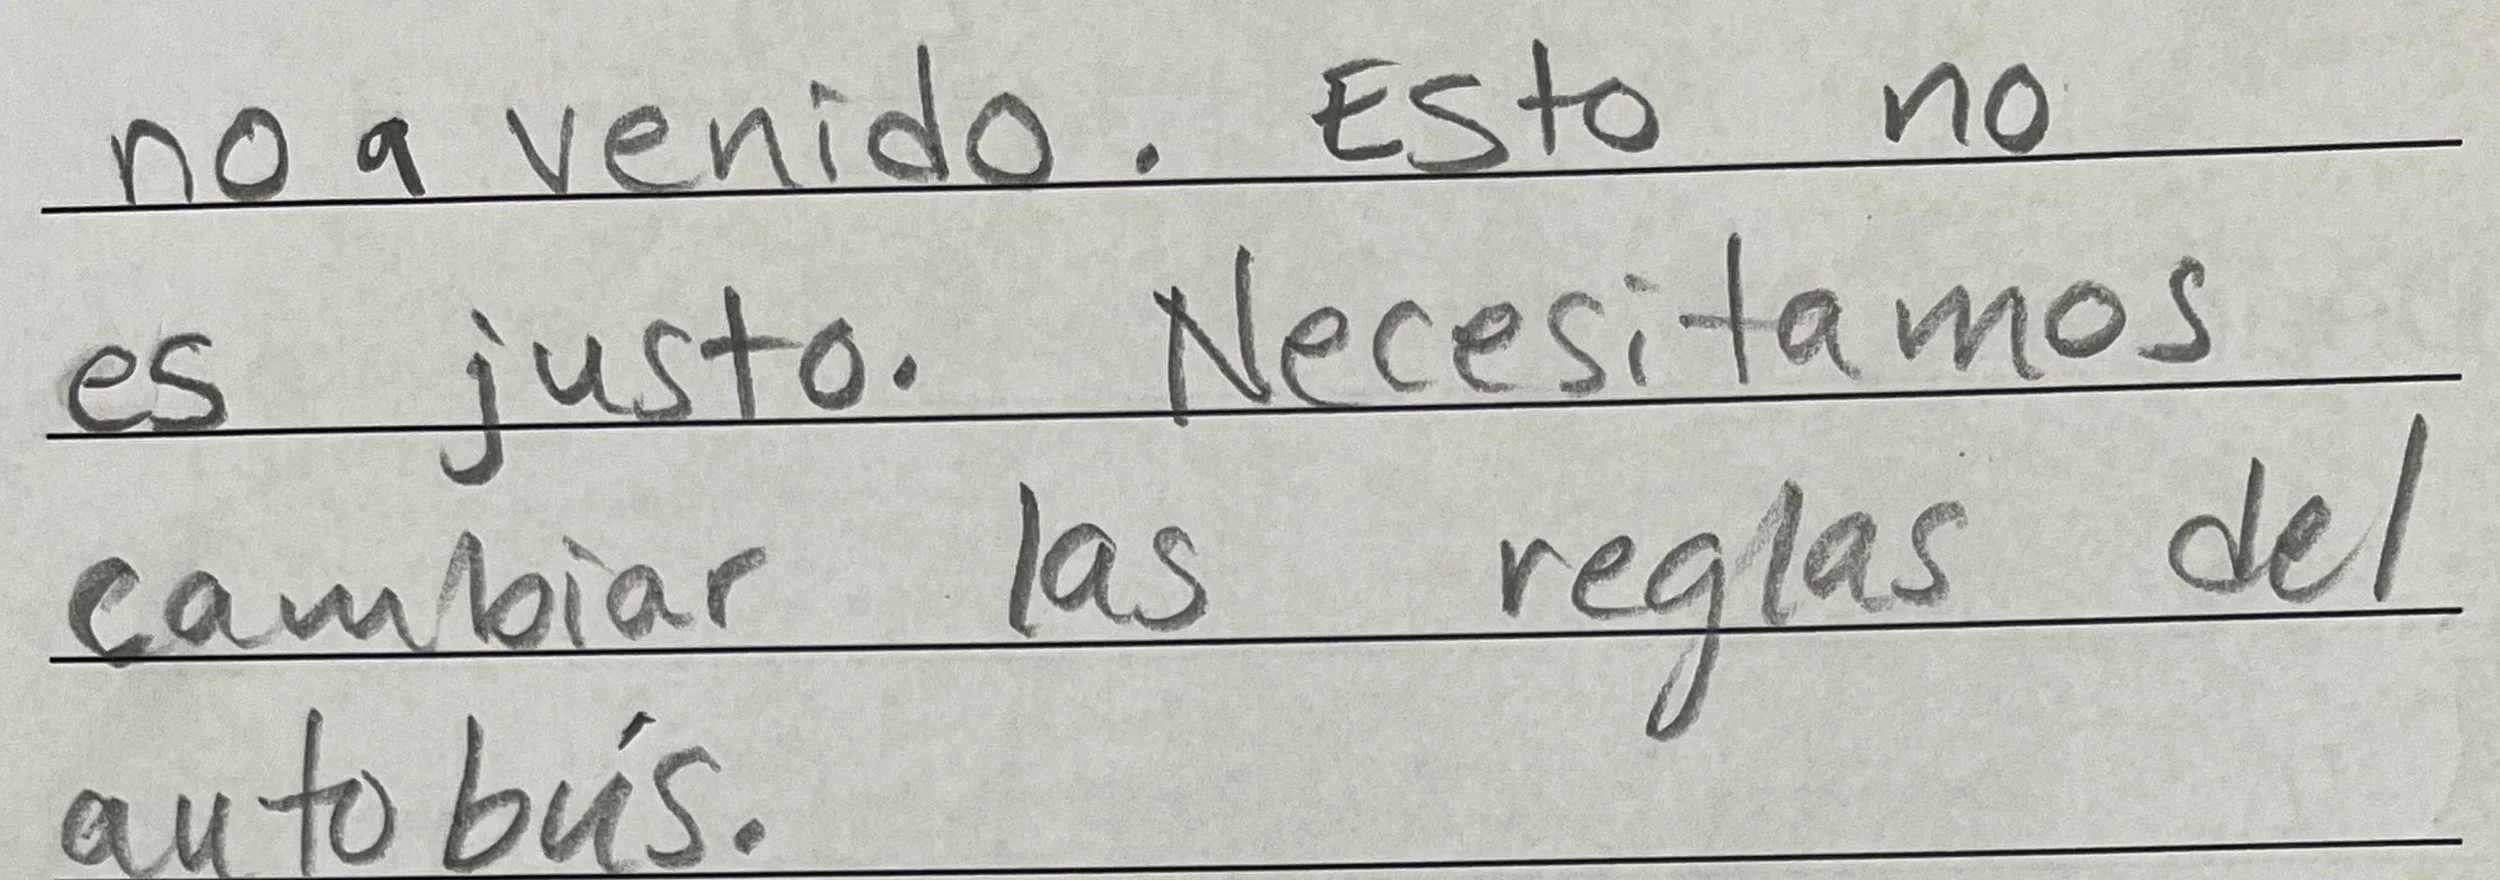 no a venido. Esto no
es justo. Necesitamos
cambiar las reglas del
autobús.